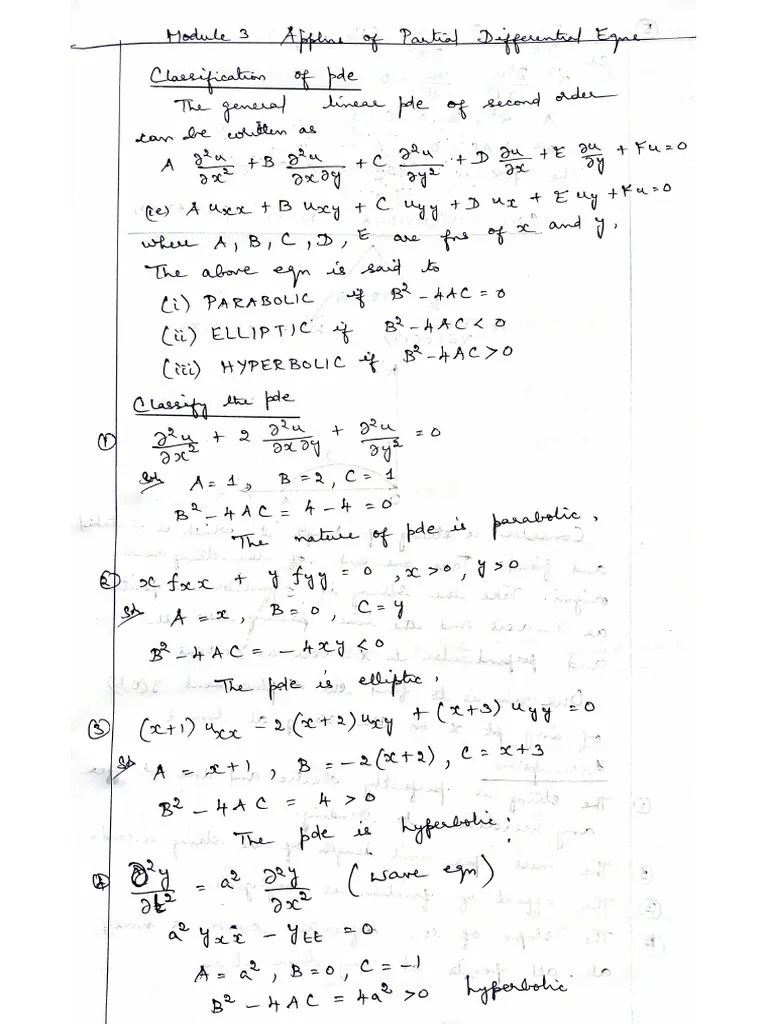 Module 3 Appline of Partial Differential Eqns
Classification of pde
The general linear pde of second order
can be written as
A ∂²u/∂x² + B ∂²u/∂x∂y + C ∂²u/∂y² + D ∂u/∂x + E ∂u/∂y + Fu = 0
(ie) A uxx + B uxy + C uyy + D ux + E uy + Fu = 0
where A, B, C, D, E are fns of x and y.
The above eqn is said to
(i) PARABOLIC if B² - 4AC = 0
(ii) ELLIPTIC if B² - 4AC < 0
(iii) HYPERBOLIC if B² - 4AC > 0
Classify the pde
① ∂²u/∂x² + 2 ∂²u/∂x∂y + ∂²u/∂y² = 0
Sol A = 1, B = 2, C = 1
B² - 4AC = 4 - 4 = 0
The nature of pde is parabolic.
② x fxx + y fyy = 0, x > 0, y > 0
Sol A = x, B = 0, C = y
B² - 4AC = -4xy < 0
The pde is elliptic.
③ (x+1) uxx - 2(x+2) uxy + (x+3) uyy = 0
Sol A = x+1, B = -2(x+2), C = x+3
B² - 4AC = 4 > 0
The pde is hyperbolic.
④ ∂²y/∂t² = a² ∂²y/∂x² (wave eqn)
a² yxx - ytt = 0
A = a², B = 0, C = -1
B² - 4AC = 4a² > 0 hyperbolic